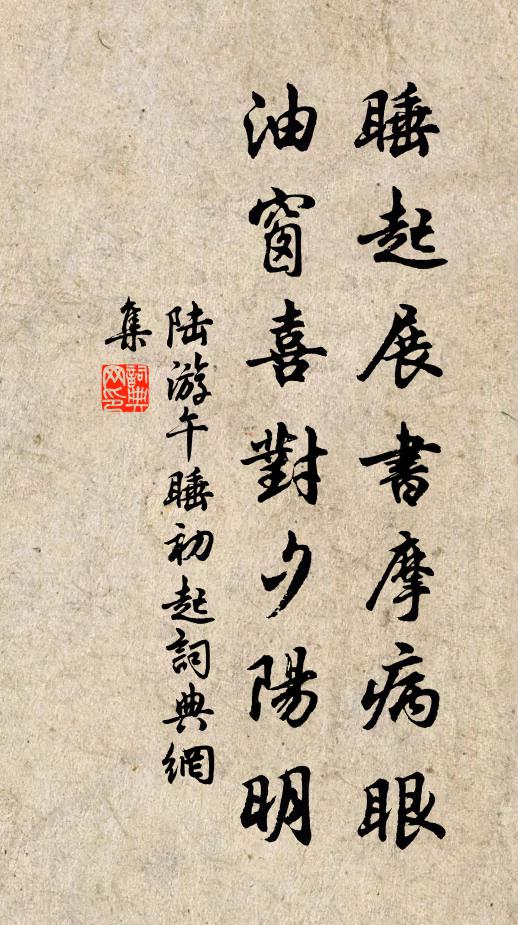 睡起展書摩病眼
油窗喜對夕陽明
陆游午睡初起詞典網
集
詞典
网印